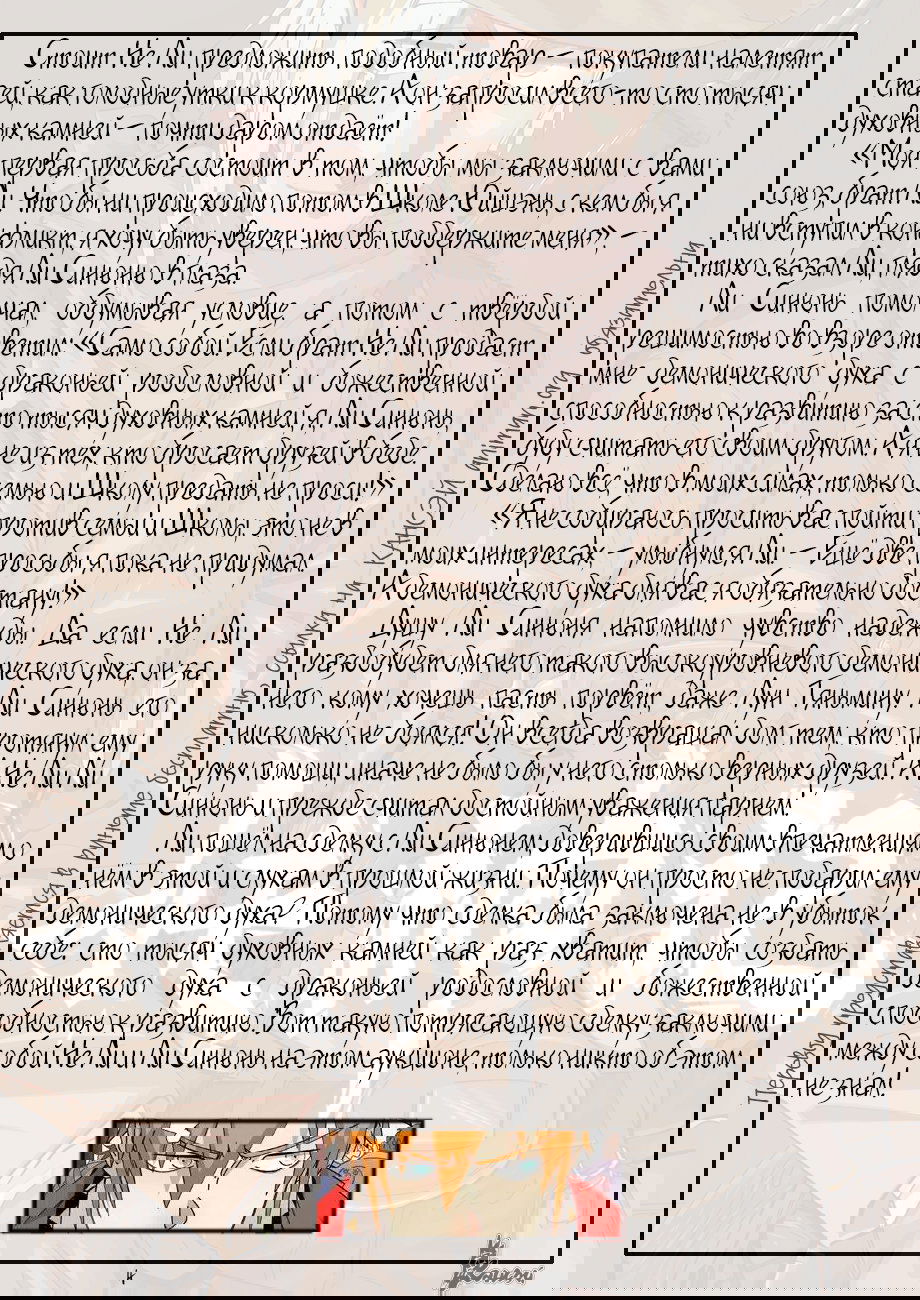 Стоит Не Ли предложить подобный товар — покупатели налетят
стаей, как голодные утки к кормушке. А он запросил всего-то сто тысяч
духовных камней — почти даром отдаёт!
«Моя первая просьба состоит в том, чтобы мы заключили с вами
союз, брат Ли. Что бы ни происходило потом в Школе
ни вступил в конфликт, я хочу быть уверен, что вы поддержите меня», —
тихо сказал Ли, глядя Ли Синюню в глаза.
Ли Синюнь помолчал, обдумывая условие, а потом с твёрдой
решимостью во взоре ответил: «Само собой. Если брат Не Ли продаст
мне демонического духа с драконьей родословной и божественной
способностью к развитию за сто тысяч духовных камней, я, Ли Синюнь,
буду считать его своим другом. А я не из тех, кто бросает друзей в беде.
Сделаю всё, что в моих силах, только семью и Школу предать не проси!»
«Я не собираюсь просить вас пойти против семьи и Школы, это не в
моих интересах — улыбнулся Ли — Ещё две просьбы я пока не придумал.
А демонического духа для вас я обязательно достану!»
Душу Ли Синюня наполнило чувство надежды. Да если Не Ли
раздобудет для него такого высокоуровневого демонического духа, он за
него кому хочешь пасть порвёт, даже Лун Тяньмину. Ли Синюнь его
нисколько не боялся! Он всегда возвращал долг тем, кто протянул ему
руку помощи, иначе не было бы у него столько верных друзей. К Не Ли Ли
Синюнь и прежде считал достойным уважения парнем.
Ли пошёл на сделку с Ли Синюнем, доверившись своим впечатлениям о
нём в этой и слухам в прошлой жизни. Почему он просто не подарил ему
демонического духа? Потому что сделка была заключена не в убыток
себе: сто тысяч духовных камней как раз хватит, чтобы создать
демонического духа с драконьей родословной и божественной
способностью к развитию. Вот такую потрясающую сделку заключили
между собой Не Ли и Ли Синюнь на этом аукционе, только никто об этом
не знал.